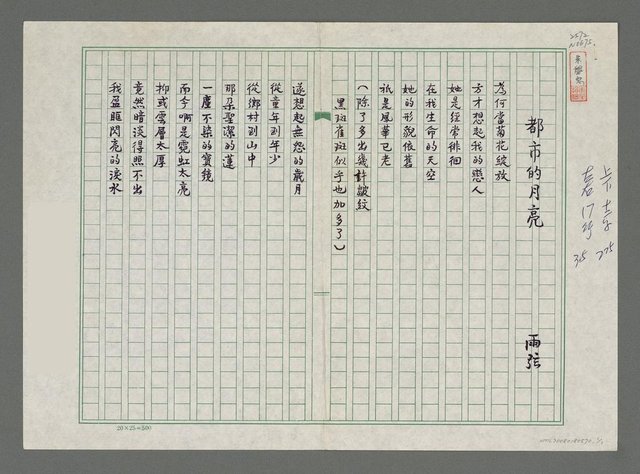 都市的月亮
雨弦
為何當菊花綻放
方才想起我的戀人
她是經常徘徊
在我生命的天空
她的形貌依舊
祇是風華已老
(除了多出幾許皺紋
黑斑雀斑似乎也加多了)
遂想起無怨的歲月
從童年到年少
從鄉村到山中
那朵聖潔的蓮
一塵不染的寶鏡
而今啊是霓虹太亮
抑或雲層太厚
竟然暗淡得照不出
我盈眶閃亮的淚水
20×25=500